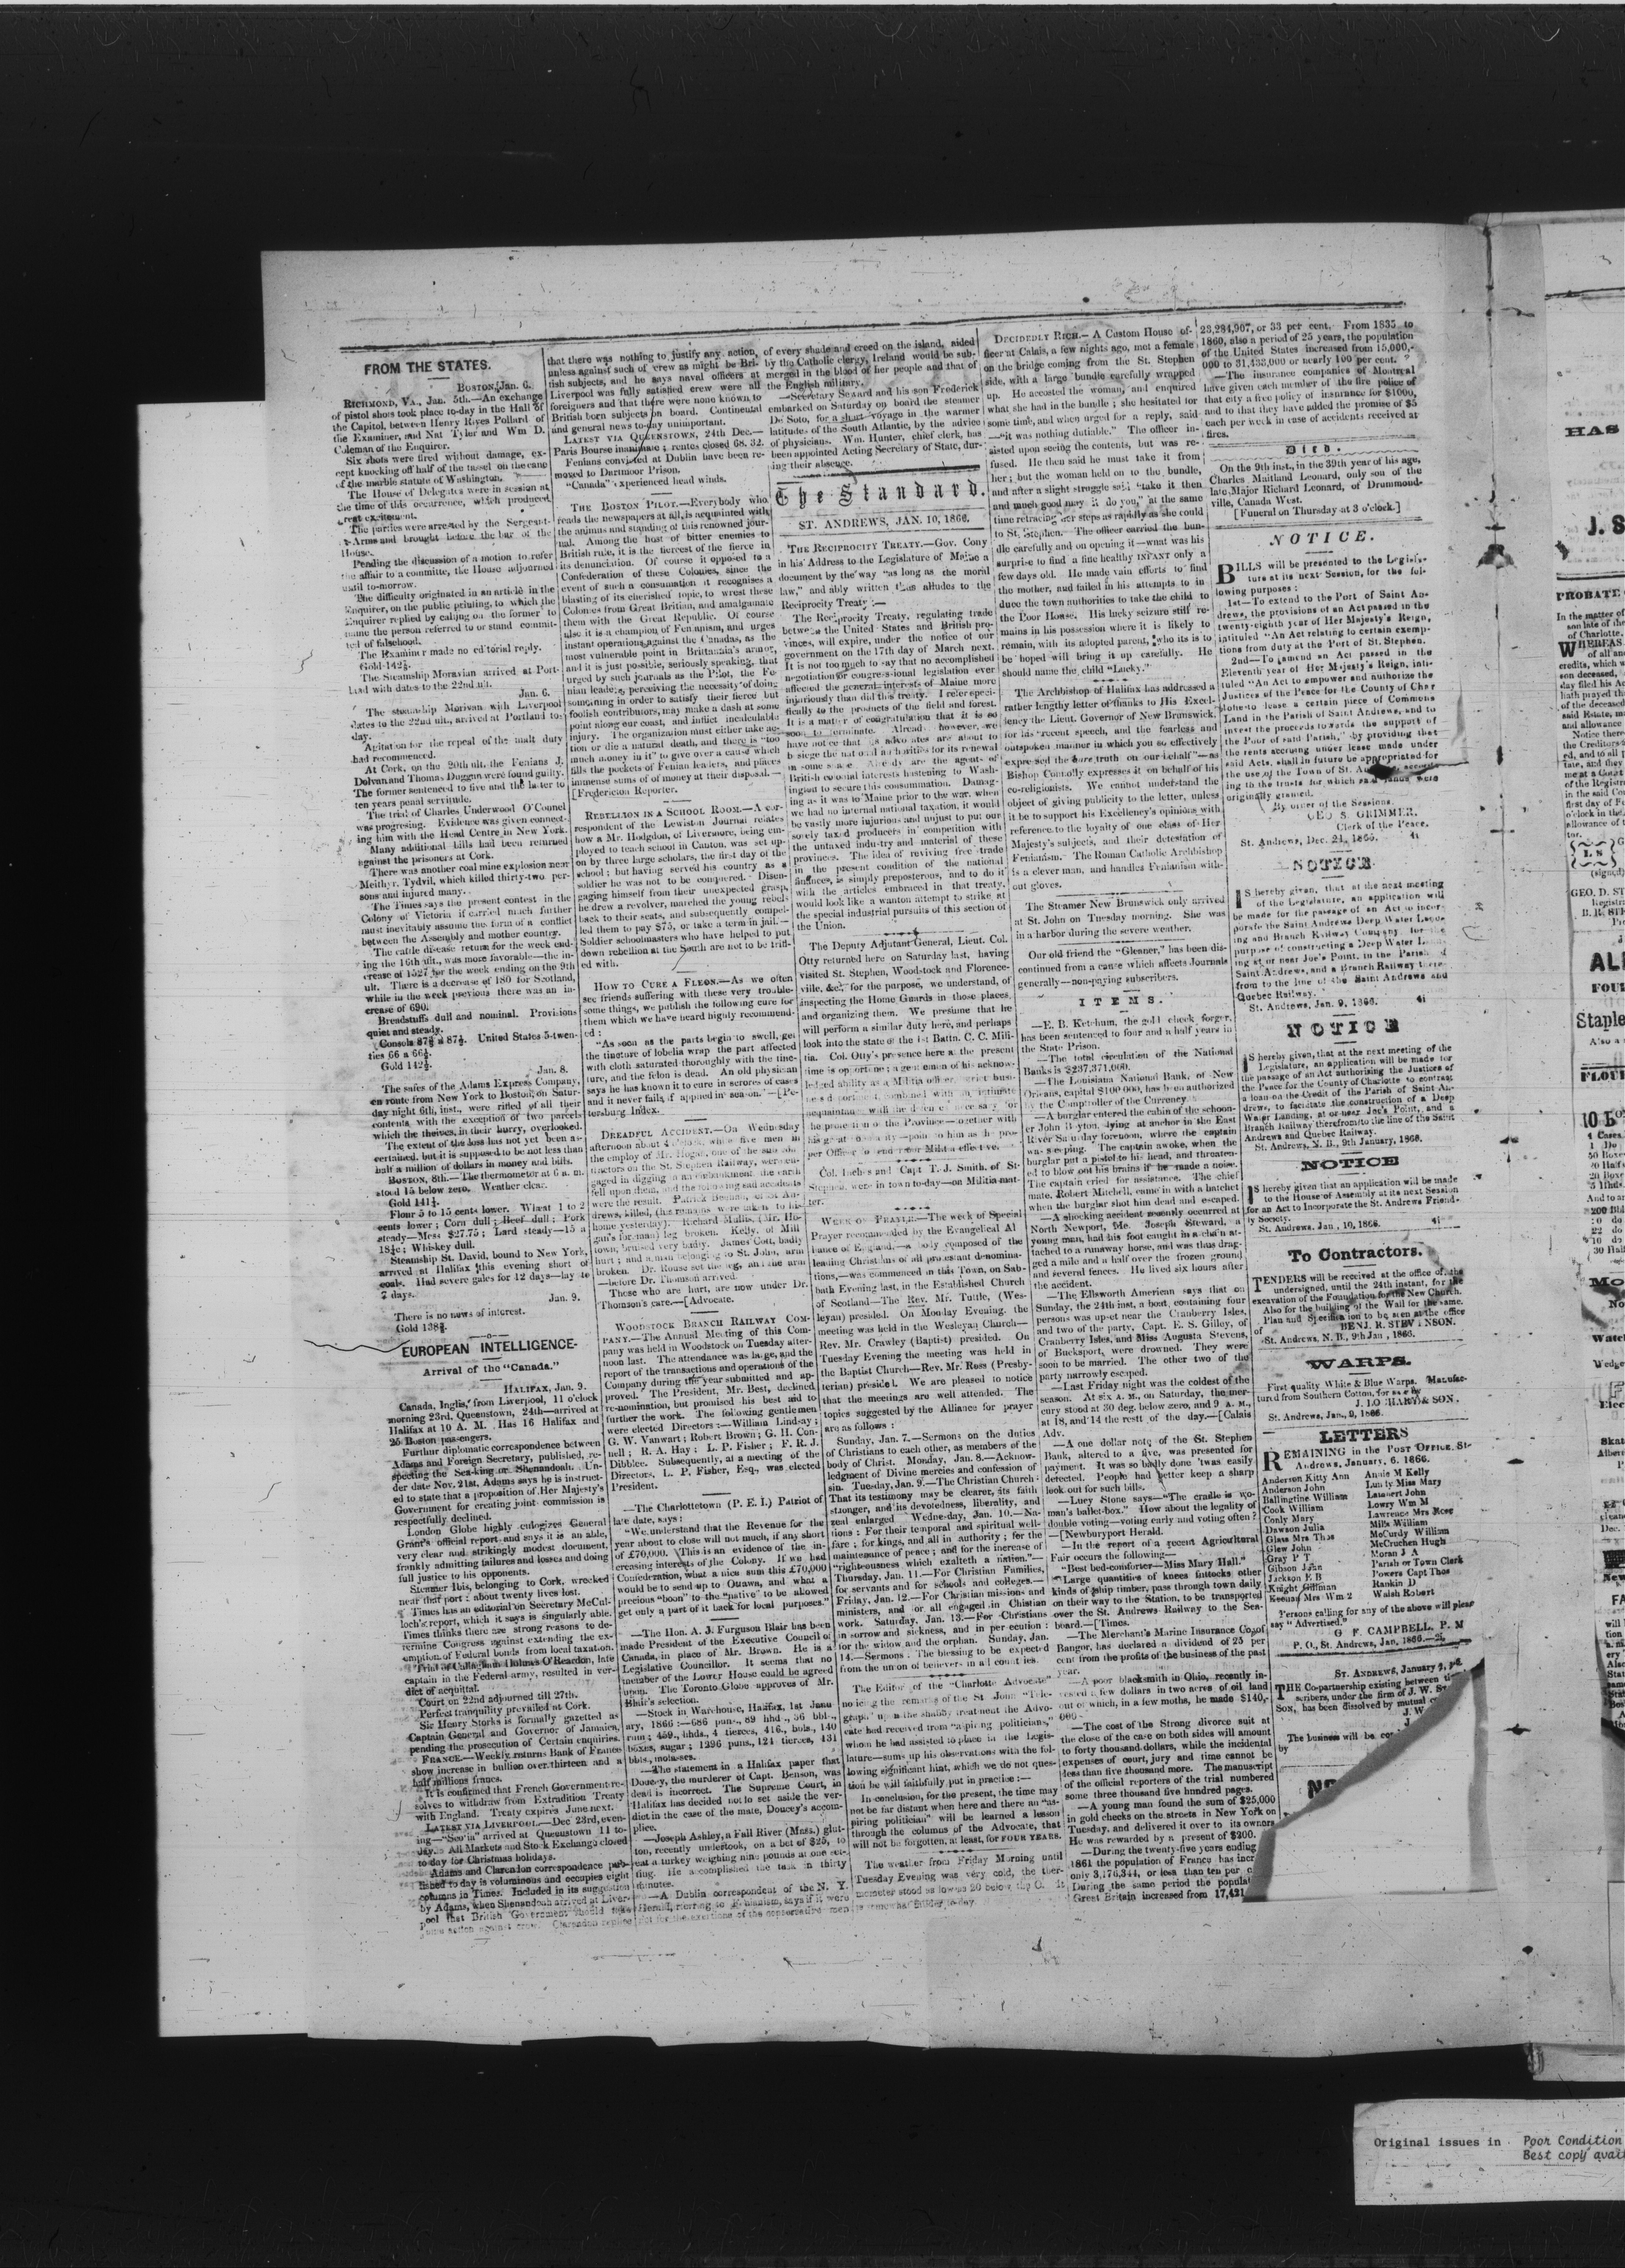 FROM THE STATES.
BOSTON, Jan. 6.
RICHMOND, VA., Jan. 5th.—An exchange
of pistol shots took place to-day in the Hall of
the Capitol, between Henry Rives Pollard of
the Examiner, and Nat Tyler and Wm D.
Coleman of the Enquirer.
Six shots were fired without damage, ex-
cept knocking off half of the tassel on the cane
of the marble statute of Washington.
The House of Delegates were in session at
the time of this occurrence, which produced
great excitement.
The parties were arrested by the Sergeant-
Arms and brought before the bar of the
House.
Pending the discussion of a motion to refer
the affair to a committe, the House adjourned
until to-morrow.
The difficulty originated in an article in the
Enquirer, on the public printing, to which the
Enquirer replied by calling on the former to
name the person referred to or stand commit-
ted of falsehood.
The Examiner made no editorial reply.
Gold 142½.
The Steamship Moravian arrived at Port-
land with dates to the 22nd ult.
Jan. 6.
The steamship Morivan with Liverpool
dates to the 22nd ult, arrived at Portland to-
day.
Agitation for the repeal of the malt duty
had recommenced.
At Cork, on the 20th ult. the Fenians J.
Dolvan and Thomas Duggan were found guilty.
The former sentenced to five and the latter to
ten years penal servitude.
The trial of Charles Underwood O'Connel
was progresing. Evidence was given connect-
ing him with the Head Centre in New York.
Many additional bills had been returned
against the prisoners at Cork.
There was another coal mine explosion near
Meithyr, Tydvil, which killed thirty-two per-
sons and injured many.
The Times says the present contest in the
Colony of Victoria if carried much further
must inevitably assume the form of a conflict
between the Assembly and mother country.
The cattle disease return for the week end-
ing the 16th ult., was more favorable—the in-
crease of 1527 for the week ending on the 9th
ult. There is a decrease of 180 for Scotland,
while in the week previous there was an in-
crease of 690.
Breadstuffs dull and nominal. Provisions
quiet and steady.
United States 5-twen-
ties 66 a 66½.
Gold 142½.
Jan. 8.
The safes of the Adams Express Company,
en route from New York to Boston, on Satur-
day night 6th, inst., were rifled of all their
contents, with the exception of two parcels
which the theives, in their hurry, overlooked.
The extent of the loss has not yet been as-
certained, but it is supposed to be not less than
half a million of dollars in money and bills.
BOSTON, 8th.—The thermometer at 6 a. m.
stood 15 below zero. Weather clear.
Gold 141½.
Flour 5 to 15 cents lower. Wheat 1 to 2
cents lower; Corn dull; Beef dull; Pork
steady—Mess $27.75; Lard steady—15 a
18½c; Whiskey dull.
Steamship St. David, bound to New York,
arrived at Halifax this evening short of
coals. Had severe gales for 12 days—lay to
7 days.
Jan. 9.
There is no news of interest.
EUROPEAN INTELLIGENCE.
Arrival of the "Canada."
HALIFAX, Jan. 9.
Canada, Inglis, from Liverpool, 11 o'clock
morning 23rd, Queenstown, 24th—arrived at
Halifax at 10 A. M. Has 16 Halifax and
25 Boston passengers.
Furthur diplomatic correspondence between
Adams and Foreign Secretary, published, re-
specting the Sea-king or Shenandoah. Un-
der date Nov. 21st, Adams says he is instruct-
ed to state that a proposition of Her Majesty's
Government for creating joint commission is
respectfully declined.
London Globe highly eulogizes General
Grant's official report and says it is an able,
very clear and strikingly modest document,
frankly admitting failures and losses and doing
full justice to his opponents.
Steamer Ibis, belonging to Cork, wrecked
near that port: about twenty lives lost.
Times has an editorial on Secretary McCul-
loch's report, which it says is singularly able.
Times thinks there are strong reasons to de-
termine Congress against extending the ex-
emption of Federal bonds from local taxation.
captain in the Federal army, resulted in ver-
dict of acquittal.
Court on 22nd adjourned till 27th.
Perfect tranquility prevailed at Cork.
Sir Henry Storks is formally gazetted as
Captain General and Governor of Jamaica,
pending the prosecution of Certain enquiries.
FRANCE.—Weekly returns Bank of France
show increase in bullion over thirteen and a
half millions francs.
It is confirmed that French Government re-
solves to withdraw from Extradition Treaty
with England. Treaty expires June next.
LATEST VIA LIVERPOOL.—Dec 23rd, even-
ing—"Scotia" arrived at Queenstown 11 to-
day. All Markets and Stock Exchange closed
to day for Christmas holidays.
Adams and Clarendon correspondence pub-
lished to day is voluminous and occupies eight
columns in Times. Included in its suggestion
by Adams, when Shenandoah arrived at Liver-
pool that British Government should take
Clarendon replied
that there was nothing to justify any action,
unless against such of crew as might be Bri-
tish subjects, and he says naval officers at
Liverpool was fully satisfied crew were all
foreigners and that there were none known to
British born subjects on board. Continental
and general news to-day unimportant.
LATEST VIA QUEENSTOWN, 24th Dec.—
Paris Bourse inanimate; rentes closed 68. 32.
Fenians convicted at Dublin have been re-
moved to Dartmoor Prison.
"Canada" experienced head winds.
THE BOSTON PILOT.—Everybody who
reads the newspapers at all, is acquainted with
the animus and standing of this renowned jour-
nal. Among the host of bitter enemies to
British rule, it is the fiercest of the fierce in
its denunciation. Of course it opposed to a
Confederation of these Colonies, since the
event of such a consumation it recognises a
blasting of its cherished topic, to wrest these
Colonies from Great Britian, and amalgamate
them with the Great Republic. Of course
also it is a champion of Fenianism, and urges
instant operations against the Canadas, as the
most vulnerable point in Brittannia's armor,
and it is just possible, seriously speaking, that
urged by such journals as the Pilot, the Fe-
nian leaders, perceiving the necessity of doing
something in order to satisfy their fierce but
foolish contributors, may make a dash at some
point along our coast, and inflict incalculable
injury. The organization must either take ac-
tion or die a natural death, and there is "too
much money in it" to give over a cause which
fills the pockets of Fenian leaders, and places
immense sums of of money at their disposal.—
[Fredericton Reporter.
REBELLION IN A SCHOOL ROOM.—A cor-
respondent of the Lewiston Journal relates
how a Mr. Hodgdon, of Livermore, being em-
ployed to teach school in Canton, was set up-
on by three large scholars, the first day of the
school; but having served his country as a
soldier he was not to be conquered. Disen-
gaging himself from their unexpected grasp,
he drew a revolver, marched the young rebels
back to their seats, and subsequently compel-
led them to pay $75, or take a term in jail.—
Soldier schoolmasters who have helped to put
down rebellion at the South are not to be trifl-
ed with.
HOW TO CURE A FLEON.—As we often
see friends suffering with these very trouble-
some things, we publish the following cure for
them which we have heard highly recommend-
ed:
"As soon as the parts begin to swell, get
the tincture of lobelia wrap the part affected
with cloth saturated thoroughly with the tinc-
ture, and the felon is dead. An old physician
says he has known it to cure in scrores of cases
and it never fails, if applied in season."—[Pe-
tersburg Index.
DREADFUL ACCIDENT.—On Wednesday
afternoon about 4 o'clock, while five men in
the employ of Mr. Hogan, one of the sub con-
tractors on the St. Stephen Railway, were en-
gaged in digging in an embankment the earth
fell upon them, and the following sad accidents
were the result. Patrick Beenan, of St An-
drews, killed, (his remains were taken to his
home yesterday). Richard Mullis, (Mr. Ho-
gan's foreman) leg broken. Kelly, of Mill
town, bruised very badly. James Cott, badly
hurt; and a man belonging to St. John, arm
broken. Dr. Rouse set the leg, and the arm
—before Dr. Thomson arrived.
Those who are hurt, are now under Dr.
Thomson's care.—[Advocate.
WOODSTOCK BRANCH RAILWAY COM-
PANY.—The Annual Meeting of this Com-
pany was held in Woodstock on Tuesday after-
noon last. The attendance was large, and the
report of the transactions and operations of the
Company during the year submitted and ap-
proved. The President, Mr. Best, declined
re-nomination, but promised his best aid to
further the work. The following gentlemen
were elected Directors:—William Lindsay;
G. W. Vanwart; Robert Brown; G. H. Con-
nell; R. A. Hay; L. P. Fisher; F. R. J.
Dibblee. Subsequently, at a meeting of the
Directors, L. P. Fisher, Esq., was elected
President.
—The Charlottetown (P. E. I.) Patriot of
late date, says:
"We understand that the Revenue for the
year about to close will not much, if any short
of £70,000. This is an evidence of the in-
creasing interests of the Colony. If we had
Confederation, what a nice sum this £70,000
would be to send up to Ottawa, and what a
precious "boon" to the "native" to be allowed
get only a part of it back for local purposes."
—The Hon. A. J. Furguson Blair has been
made President of the Executive Council of
Canada, in place of Mr. Brown. He is a
Legislative Councillor. It seems that no
member of the Lower House could be agreed
upon. The Toronto Globe approves of Mr.
Blair's selection.
—Stock in Warehouse, Halifax, 1st Janu
ary, 1866:—686 puns., 89 hhd., 36 bbl.,
rum; 459., hhds., 4 tierces, 416., bols., 140
boxes, sugar; 1296 puns., 121 tierces, 431
bbls., molasses.
—The statement in a Halifax paper that
Doucey, the murderer of Capt. Benson, was
dead is incorrect. The Supreme Court, in
Halifax has decided not to set aside the ver-
dict in the case of the mate, Doucey's accom-
plice.
—Joseph Ashley, a Fall River (Mass.) glut-
ton, recently undertook, on a bet of $25, to
eat a turkey weighing nine pounds at one set-
ting. He accomplished the task in thirty
minutes.
—A Dublin correspondent of the N. Y.
Herald, referring to Fenianism, says if it were
not for the exertions of the conservative men
of every shade and creed on the island, aided
by the Catholic clergy, Ireland would be sub-
merged in the blood of her people and that of
the English military.
—Secretary Seward and his son Frederick
embarked on Saturday on board the steamer
De Soto, for a short voyage in the warmer
latitudes of the South Atlantic, by the advice
of physicians. Wm. Hunter, chief clerk, has
been appointed Acting Secretary of State, dur-
ing their absence.
The Standard.
ST. ANDREWS, JAN. 10, 1866.
THE RECIPROCITY TREATY.—Gov. Cony
in his Address to the Legislature of Maine a
document by the way "as long as the moral
law," and ably written thus alludes to the
Reciprocity Treaty:—
The Reciprocity Treaty, regulating trade
between the United States and British pro-
vinces, will expire, under the notice of our
government on the 17th day of March next.
It is not too much to say that no accomplished
negotiation or congressional legislation ever
affected the general interests of Maine more
injuriously than did this treaty. I refer speci-
fically to the products of the field and forest.
It is a matter of congratulation that it is so
soon to terminate. Already however, we
have notice that its advocates are about to
besiege the national authorities for its renewal
in some shape. Already are the agents of
British colonial interests hastening to Wash-
ington to secure this consummation. Damag-
ing as it was to Maine prior to the war, when
we had no internal national taxation, it would
be vastly more injurious and unjust to put our
sorely taxed producers in competition with
the untaxed industry and material of these
provinces. The idea of reviving free trade
in the present condition of the national
finances, is simply preposterous, and to do it
with the articles embraced in that treaty,
would look like a wanton attempt to strike at
the special industrial pursuits of this section of
the Union.
The Deputy Adjutant General, Lieut. Col.
Otty returned here on Saturday last, having
visited St. Stephen, Woodstock and Florence-
ville, &c., for the purpose, we understand, of
inspecting the Home Guards in those places,
and organizing them. We presume that he
will perform a similar duty here, and perhaps
look into the state of the 1st Battn. C. C. Mili-
tia. Col. Otty's presence here at the present
time is opportune; a gentleman of his acknow-
ledged ability as a Militia officer
the protection of the Province—together with
per Officer to render our Militia effective.
Col. Inches and Capt T. J. Smith, of St-
Stephen, were in town to-day—on Militia mat-
ter.
WEEK OF PRAYER.—The week of Special
Prayer recommended by the Evangelical Al
liance of England,—a body composed of the
leading Christians of all protestant denomina-
tions,—was commenced in this Town, on Sab-
bath Evening last, in the Established Church
of Scotland—The Rev. Mr. Tuttle, (Wes-
leyan) presided. On Monday Evening, the
meeting was held in the Wesleyan Church—
Rev. Mr. Crawley (Baptist) presided. On
Tuesday Evening the meeting was held in
the Baptist Church—Rev. Mr. Ross (Presby-
terian) presided. We are pleased to notice
that the meetings are well attended. The
topics suggested by the Alliance for prayer
are as follows:
Sunday, Jan. 7.—Sermons on the duties
of Christians to each other, as members of the
body of Christ. Monday, Jan. 8.—Acknow-
ledgment of Divine mercies and confession of
sin. Tuesday, Jan. 9.—The Christian Church:
That its testimony may be clearer, its faith
stronger, and its devotedness, liberality, and
zeal enlarged Wednesday, Jan. 10.—Na-
tions: For their temporal and spiritual well-
fare; for kings, and all in authority; for the
maintenance of peace; and for the increase of
"righteousness which exalteth a nation."—
Thursday, Jan. 11.—For Christian Families,
for servants and for schools and colleges.—
Friday, Jan. 12.—For Christian missions and
ministers, and for all engaged in Christian
work. Saturday, Jan. 13.—For Christians
in sorrow and sickness, and in persecution:
for the widow and the orphan. Sunday, Jan.
14.—Sermons. The blessing to be expected
from the union of believers in all countries.
The Editor of the "Charlotte Advocate"
noticing the remarks of the St John "Tele-
graph" upon the shabby treatment the Advo-
cate had received from "aspiring politicians,"
whom he had assisted to place in the Legis-
lature—sums up his observations with the fol-
lowing significant hint, which we do not ques-
tion he will faithfully put in practise:—
In conclusion, for the present, the time may
not be far distant when here and there an "as-
piring politician" will be learned a lesson
through the columns of the Advocate, that
will not be forgotten, at least, for FOUR YEARS.
The weather from Friday Morning until
Tuesday Evening was very cold, the ther-
mometer stood as low as 20 below the O. It
is somewhat milder to-day.
DECIDEDLY RICH.—A Custom House of-
ficer at Calais, a few nights ago, met a female
on the bridge coming from the St. Stephen
side, with a large bundle carefully wrapped
up. He accosted the woman, and enquired
what she had in the bundle; she hesitated for
some time, and when urged for a reply, said
—"it was nothing dutiable." The officer in-
sisted upon seeing the contents, but was re-
fused. He then said he must take it from
her; but the woman held on to the bundle,
and after a slight struggle said "take it then
and much good may it do you," at the same
time retracing her steps as rapidly as she could
to St. Stephen. The officer carried the bun-
dle carefully and on opening it—what was his
surprise to find a fine healthy INFANT only a
few days old. He made vain efforts to find
the mother, and failed in his attempts to in
duce the town authorities to take the child to
the Poor House. His lucky seizure still re-
mains in his possession where it is likely to
remain, with its adopted parent, who its is to
be hoped will bring it up carefully. He
should name the child "Lucky."
The Archbishop of Halifax has addressed a
rather lengthy letter of thanks to His Excel-
lency the Lieut. Governor of New Brunswick,
for his "recent speech, and the fearless and
outspoken manner in which you so effectively
expressed the bare truth on our behalf"—as
Bishop Connolly expresses it on behalf of his
co-religionists. We cannot understand the
object of giving publicity to the letter, unless
it be to support his Excellency's opinions with
reference to the loyalty of one class of Her
Majesty's subjects, and their detestation of
Fenianism. The Roman Catholic Archbishop
is a clever man, and handles Fenianism with-
out gloves.
The Steamer New Brunswick only arrived
at St. John on Tuesday morning. She was
in a harbor during the severe weather.
Our old friend the "Gleaner," has been dis-
continued from a cause which affects Journals
generally—non-paying subscribers.
ITEMS.
—E. B. Ketchum, the gold check forger,
has been sentenced to four and a half years in
the State Prison.
—The total circulation of the National
Banks is $237,371,060.
—The Louisiana National Bank, of New
Orleans, capital $100 000, has been authorized
by the Comptroller of the Currency.
—A burglar entered the cabin of the schoon-
er John Boyton, lying at anchor in the East
River Sunday forenoon, where the captain
was sleeping. The captain awoke, when the
burglar put a pistol to his head, and threaten-
ed to blow out his brains if he made a noise.
The captain cried for assistance. The chief
mate, Robert Mitchell, came in with a hatchet
when the burglar shot him dead and escaped.
—A shocking accident recently occurred at
North Newport, Me. Joseph Steward, a
young man, had his foot caught in a chain at-
tached to a runaway horse, and was thus drag-
ged a mile and a half over the frozen ground
and several fences. He lived six hours after
the accident.
—The Ellsworth American says that on
Sunday, the 24th inst, a boat, containing four
persons was upset near the Cranberry Isles,
and two of the party, Capt. E. S. Gilley, of
Cranberry Isles, and Miss Augusta Stevens,
of Bucksport, were drowned. They were
soon to be married. The other two of the
party narrowly escaped.
—Last Friday night was the coldest of the
season. At six A. M., on Saturday, the mer-
cury stood at 30 deg. below zero, and 9 A. M.,
at 18, and 14 the restt of the day.—[Calais
Adv.
—A one dollar note of the St. Stephen
Bank, altered to a five, was presented for
payment. It was so badly done 'twas easily
detected. People had better keep a sharp
look out for such bills.
—Lucy Stone says—"The cradle is wo-
man's ballot-box." How about the legality of
double voting—voting early and voting often?
—[Newburyport Herald.
—In the report of a recent Agricultural
Fair occurs the following—
"Best bed-comforter—Miss Mary Hall."
—Large quantities of knees futtocks other
kinds of ship timber, pass through town daily
on their way to the Station, to be transported
over the St. Andrews Railway to the Sea-
board.—[Times.
—The Merchant's Marine Insurance Co. of
Bangor, has declared a dividend of 25 per
cent from the profits of the business of the past
year.
—A poor blacksmith in Ohio, recently in-
vested a few dollars in two acres of oil land
out of which, in a few moths, he made $140,-
000
—The cost of the Strong divorce suit at
the close of the case on both sides will amount
to forty thousand dollars, while the incidental
expenses of court, jury and time cannot be
less than five thousand more. The manuscript
of the official reporters of the trial numbered
some three thousand five hundred pages.
—A young man found the sum of $25,000
in gold checks on the streets in New York on
Tuesday, and delivered it over to its owners
He was rewarded by a present of $200.
—During the twenty-five years ending
1861 the population of France has incr
only 3,176,344, or less than ten per c
During the same period the populat
Great Britain increased from 17,421
23,284,907, or 33 per cent. From 1835 to
1860, also a period of 25 years, the population
of the United States increased from 15,000,-
000 to 31,433,000 or nearly 100 per cent.
—The insurance companies of Montreal
have given each member of the fire police of
that city a free policy of insurance for $1000,
and to that they have added the promise of $5
each per week in case of accidents received at
fires.
Died.
On the 9th inst., in the 39th year of his age,
Charles Maitland Leonard, only son of the
late Major Richard Leonard, of Drummond-
ville, Canada West.
[Funeral on Thursday at 3 o'clock.]
NOTICE.
BILLS will be presented to the Legisla-
ture at its next Session, for the fol-
lowing purposes:
1st—To extend to the Port of Saint An-
drews, the provisions of an Act passed in the
twenty-eighth year of Her Majesty's Reign,
intituled "An Act relating to certain exemp-
tions from duty at the Port of St. Stephen.
2nd—To amend an Act passed in the
Eleventh year of Her Majesty's Reign, inti-
tuled "An Act to empower and authorize the
Justices of the Peace for the County of Char
lotte to lease a certain piece of Commons
Land in the Parish of Saint Andrews, and to
invest the proceeds towards the support of
the Poor of said Parish," by providing that
the rents accruing under lease made under
said Acts, shall in future be appropriated for
the use of the Town of St.
ing to the trusts for which said lands were
originally granted.
By order of the Sessions.
GEO S. GRIMMER,
Clerk of the Peace.
St. Andrews, Dec. 24, 1865. 4i
NOTICE
IS hereby given, that at the next meeting
of the Legislature, an application will
be made for the passage of an Act to incor-
porate the Saint Andrews Deep Water Land-
ing and Branch Railway Company, for the
purpose of constructing a Deep Water Land-
ing at or near Joe's Point, in the Parish of
Saint Andrews, and a Branch Railway there-
from to the line of the Saint Andrews and
Quebec Railway.
St. Andrews, Jan. 9, 1866. 4i
NOTICE
IS hereby given, that at the next meeting of the
Legislature, an application will be made for
the passage of an Act authorising the Justices of
the Peace for the County of Charlotte to contract
a loan on the Credit of the Parish of Saint An-
drews, to facilitate the construction of a Deep
Water Landing, at or near Joe's Point, and a
Branch Railway therefrom to the line of the Saint
Andrews and Quebec Railway.
St. Andrews, N. B., 9th January, 1866.
NOTICE
IS hereby given that an application will be made
to the House of Assembly at its next Session
for an Act to Incorporate the St. Andrews Friend-
ly Society.
St. Andrews, Jan, 10, 1866. 4i
To Contractors.
TENDERS will be received at the office of the
undersigned, until the 24th instant, for the
excavation of the Foundation for the New Church.
Also for the building of the Wall for the same.
Plan and Specification to be seen at the office
of
BENJ. R. STEVENSON.
St. Andrews, N. B., 9th Jan, 1866.
WARPS.
First quality White & Blue Warps, Manufac-
tured from Southern Cotton, for sale by
& SON.
St. Andrews, Jan., 9, 1866.
LETTERS
REMAINING in the POST OFFICE, St-
Andrews, January, 6. 1866.
Anderson Kitty Ann
Anderson John
Ballingtine William
Cook William
Conly Mary
Dawson Julia
Glass Mrs Thos
Glew John
Gray P T
Gibson John
Jackson E B
Knight Gillman
Keenan Mrs Wm 2
Annie M Kelly
Lundy Miss Mary
Lambert John
Lowry Wm M
Lawrence Mrs Mose
Mills William
McCurdy William
McCruchen Hugh
Moran J A
Parish or Town Clerk
Powers Capt Thos
Rankin D
Walsh Robert
Persons calling for any of the above will please
say "Advertised."
G F. CAMPBELL, P. M
P. O., St. Andrews, Jan, 1866.—2i
ST. ANDREWS, January
THE Co-partnership existing between
scribers, under the firm of J. W.
SON, has been dissolved by mutual
J. W
The business will be
by
HAS
J. S
PROBATE
In the matter of
son late of the
of Charlotte.
WHEREAS
of all an
credits, which w
son deceased,
day filed his Ac
hath prayed th
of the deceased
said Estate, m
and allowance
Notice there
the Creditors
ed, and to all
tate, and they
me at a Court
of the Registr
in the said Co
first day of Fe
o'clock in the
allowance of
tor.
L S
(signed)
GEO. D. ST
Registra
AL
FOU
Staple
Also a
FLOUR
4 Cases
1 Do
50 Boxe
20 Half
And to ar
200 Bbl
22 do
30 Half
No
Watch
Wedge
Elec
Dec.
New
FA
Original issues in Poor Condition
Best copy avail